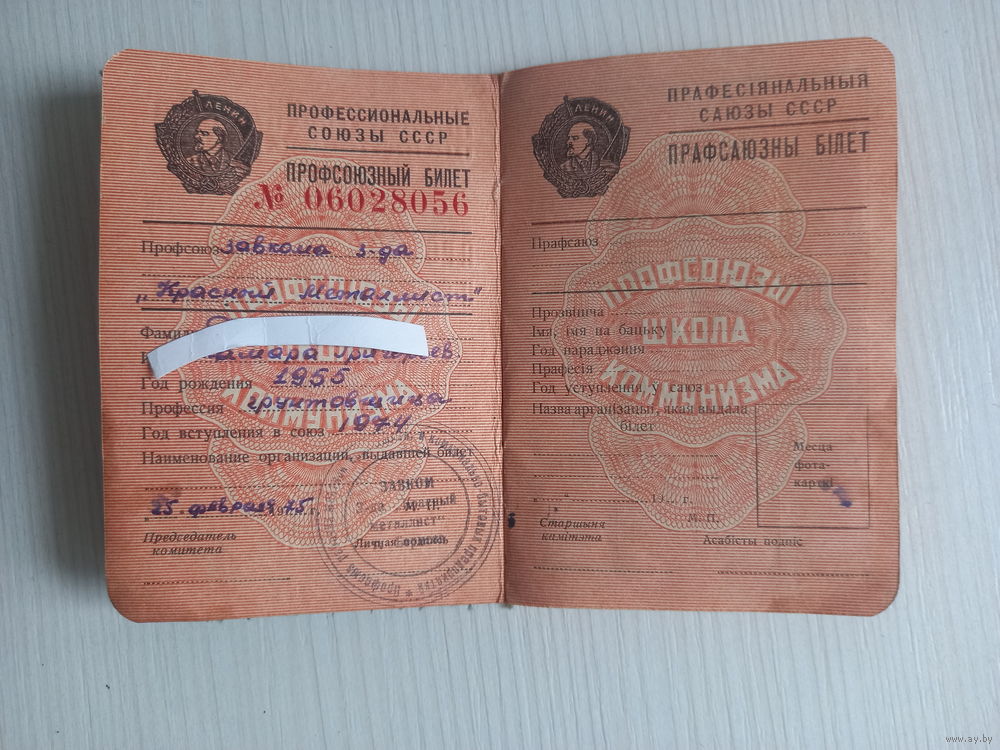 ЛЕНИН
ПРОФЕССИОНАЛЬНЫЕ
СОЮЗЫ СССР
ПРОФСОЮЗНЫЙ БИЛЕТ
№ 06028056
Профсоюз завкома з-да
"Красный металлист"
Год рождения 1955
Профессия грунтовщица
Год вступления в союз 1974
Наименование организации, выдавшей билет
25 февраля 1975 г.
Председатель
комитета
Личная подпись
М. П.
ЗАВКОМ
з-да "Красный
металлист"
ПРОФСОЮЗЫ
ШКОЛА
КОММУНИЗМА
ЛЕНИН
ПРАФЕСІЯНАЛЬНЫЯ
САЮЗЫ СССР
ПРАФСАЮЗНЫ БІЛЕТ
Прафсаюз
Прозвішча
Імя, імя па бацьку
Год нараджэння
Прафесія
Год уступлення ў саюз
Назва арганізацыі, якая выдала
білет
Месца
фота-
карткі
" " 19 г.
М. П.
Старшыня
камітэта
Асабісты подпіс
ПРОФСОЮЗЫ
ШКОЛА
КОММУНИЗМА
www.ay.by